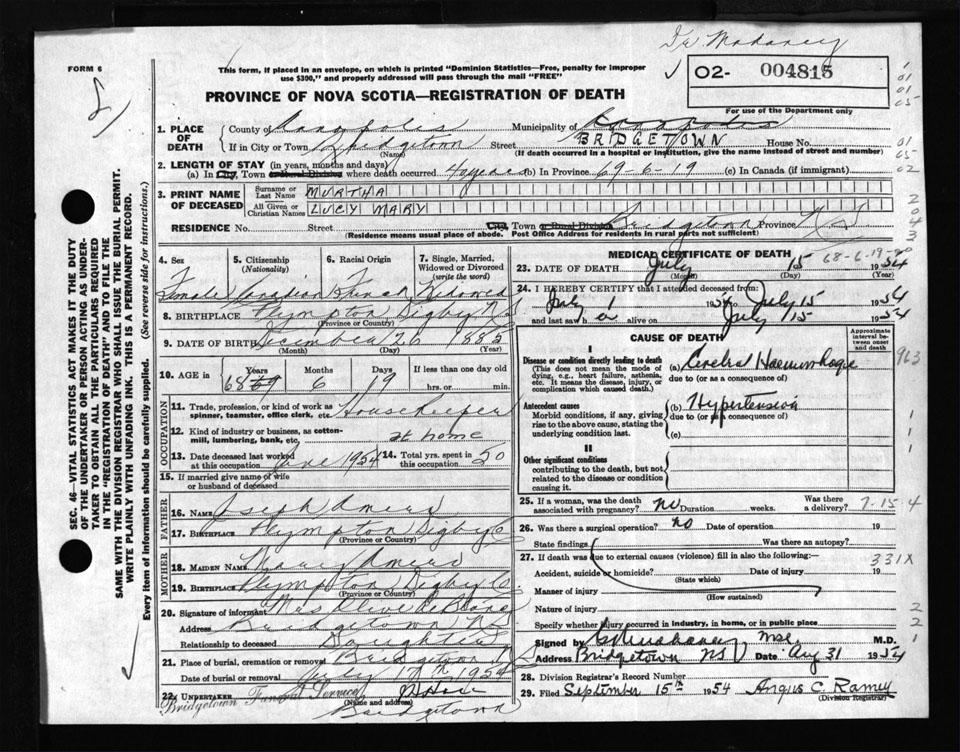 FORM 6
This form, if placed in an envelope, on which is printed "Dominion Statistics—Free, penalty for improper
use $300," and properly addressed will pass through the mail "FREE"
02- 004815
For use of the Department only
PROVINCE OF NOVA SCOTIA—REGISTRATION OF DEATH
SEC. 46—VITAL STATISTICS ACT MAKES IT THE DUTY
OF THE UNDERTAKER OR PERSON ACTING AS UNDER-
TAKER TO OBTAIN ALL THE PARTICULARS REQUIRED
IN THE "REGISTRATION OF DEATH" AND TO FILE THE
SAME WITH THE DIVISION REGISTRAR WHO SHALL ISSUE THE BURIAL PERMIT.
WRITE PLAINLY WITH UNFADING INK. THIS IS A PERMANENT RECORD.
Every item of information should be carefully supplied. (See reverse side for instructions.)
1. PLACE OF DEATH County of Annapolis Municipality of Annapolis
If in City or Town Bridgetown (Name) Street BRIDGETOWN House No.
(If death occurred in a hospital or institution, give the name instead of street and number)
2. LENGTH OF STAY (in years, months and days)
(a) In City, Town or Rural Division where death occurred 4 years (b) In Province 69-6-19 (c) In Canada (if immigrant)
3. PRINT NAME OF DECEASED Surname or Last Name MURTHA
All Given or Christian Names LUCY MARY
RESIDENCE No. Street City, Town or Rural Division Bridgetown Province N.S
(Residence means usual place of abode. Post Office Address for residents in rural parts not sufficient)
4. Sex Female
5. Citizenship (Nationality) Canadian
6. Racial Origin French
7. Single, Married, Widowed or Divorced (write the word) Widowed
8. BIRTHPLACE Plympton Digby N.S
(Province or Country)
9. DATE OF BIRTH December 26 1885
(Month) (Day) (Year)
10. AGE in Years 68 69 Months 6 Days 19 If less than one day hrs. or min.
OCCUPATION
11. Trade, profession, or kind of work as spinner, teamster, office clerk, etc. Housekeeper
12. Kind of industry or business, as cotton-mill, lumbering, bank, etc. at home
13. Date deceased last worked at this occupation June 1954
14. Total yrs. spent in this occupation 50
15. If married give name of wife or husband of deceased
FATHER
16. NAME Joseph
17. BIRTHPLACE Plympton Digby Co
(Province or Country)
MOTHER
18. MAIDEN NAME Mary
19. BIRTHPLACE Plympton Digby Co.
(Province or Country)
20. Signature of informant Mrs Olive
Address Bridgetown N.S
Relationship to deceased Daughter
21. Place of burial, cremation or removal Bridgetown
Date of burial or removal July 17th 1954
22. UNDERTAKER
Bridgetown Funeral Service
(Name and address)
Bridgetown
MEDICAL CERTIFICATE OF DEATH
68-6-19
23. DATE OF DEATH July 15 1954
(Month) (Day)
24. I HEREBY CERTIFY that I attended deceased from:
July 1 1954 to July 15 1954
and last saw h er alive on July 15 1954
CAUSE OF DEATH
Approximate interval between onset and death
I
Disease or condition directly leading to death
(This does not mean the mode of dying, e.g., heart failure, asthenia, etc. It means the disease, injury, or complication which caused death.)
(a) Cerebral Haemorrhage
due to (or as a consequence of)
Antecedent causes
Morbid conditions, if any, giving rise to the above cause, stating the underlying condition last.
(b) Hypertension
due to (or as a consequence of)
(c)
II
Other significant conditions
contributing to the death, but not related to the disease or condition causing it.
25. If a woman, was the death associated with pregnancy? no Duration weeks. Was there a delivery? 7-15-4
26. Was there surgical operation? no Date of operation 19
State findings Was there an autopsy?
27. If death was due to external causes (violence) fill in also the following: 331X
Accident, suicide or homicide? (State which) Date of injury 19
Manner of injury (How sustained)
Nature of injury
Specify whether injury occurred in industry, in home, or in public place
Signed by M.D.
Address Bridgetown NS Date Aug 31 1954
28. Division Registrar's Record Number
29. Filed September 15th 1954 Angus C. Ramey
(Division Registrar)